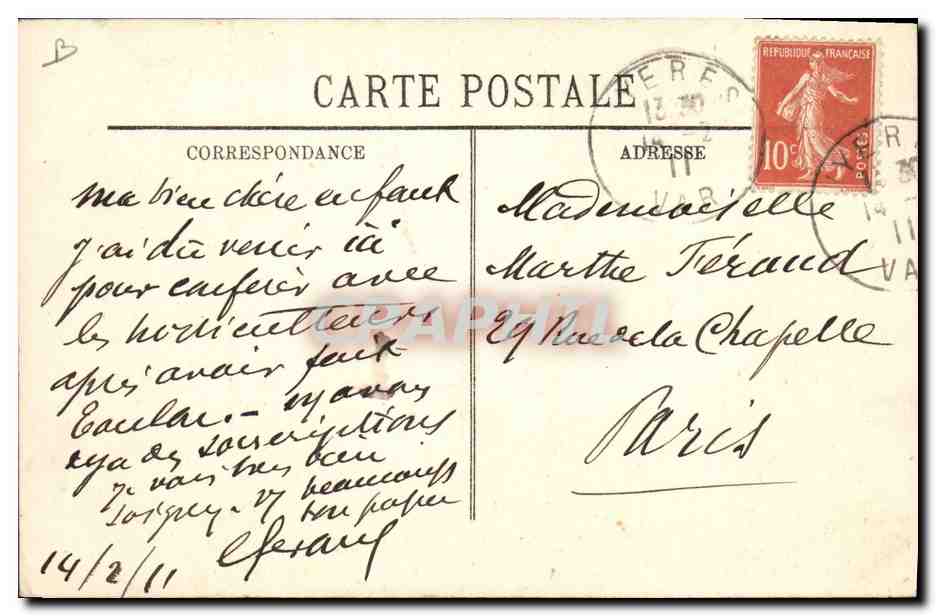 B
CARTE POSTALE
CORRESPONDANCE
ma bien chère enfant
j'ai dû venir ici
pour conférer avec
les horticulteurs
après avoir fait
Toulon. - nous avons
des souscriptions
Je vais très bien
soignez-vous beaucoup
ton papa
Féraud
14/2/11
ADRESSE
Mademoiselle
Marthe Féraud
29 Rue de la Chapelle
Paris
REPUBLIQUE FRANÇAISE
10c
POSTES
YERES
13 30
14 -2
11
VAR
YER
30
14
11
VA
GRAPHTI